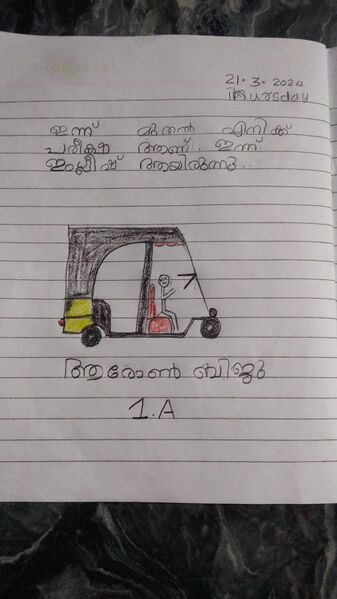 21.3.2024
Thursday
ഇന്ന് മുതൽ എനിക്ക്
പരീക്ഷ ആണ്. ഇന്ന്
ഇംഗ്ലീഷ് ആയിരുന്നു..
ആരോൺ ബിജു
1.A